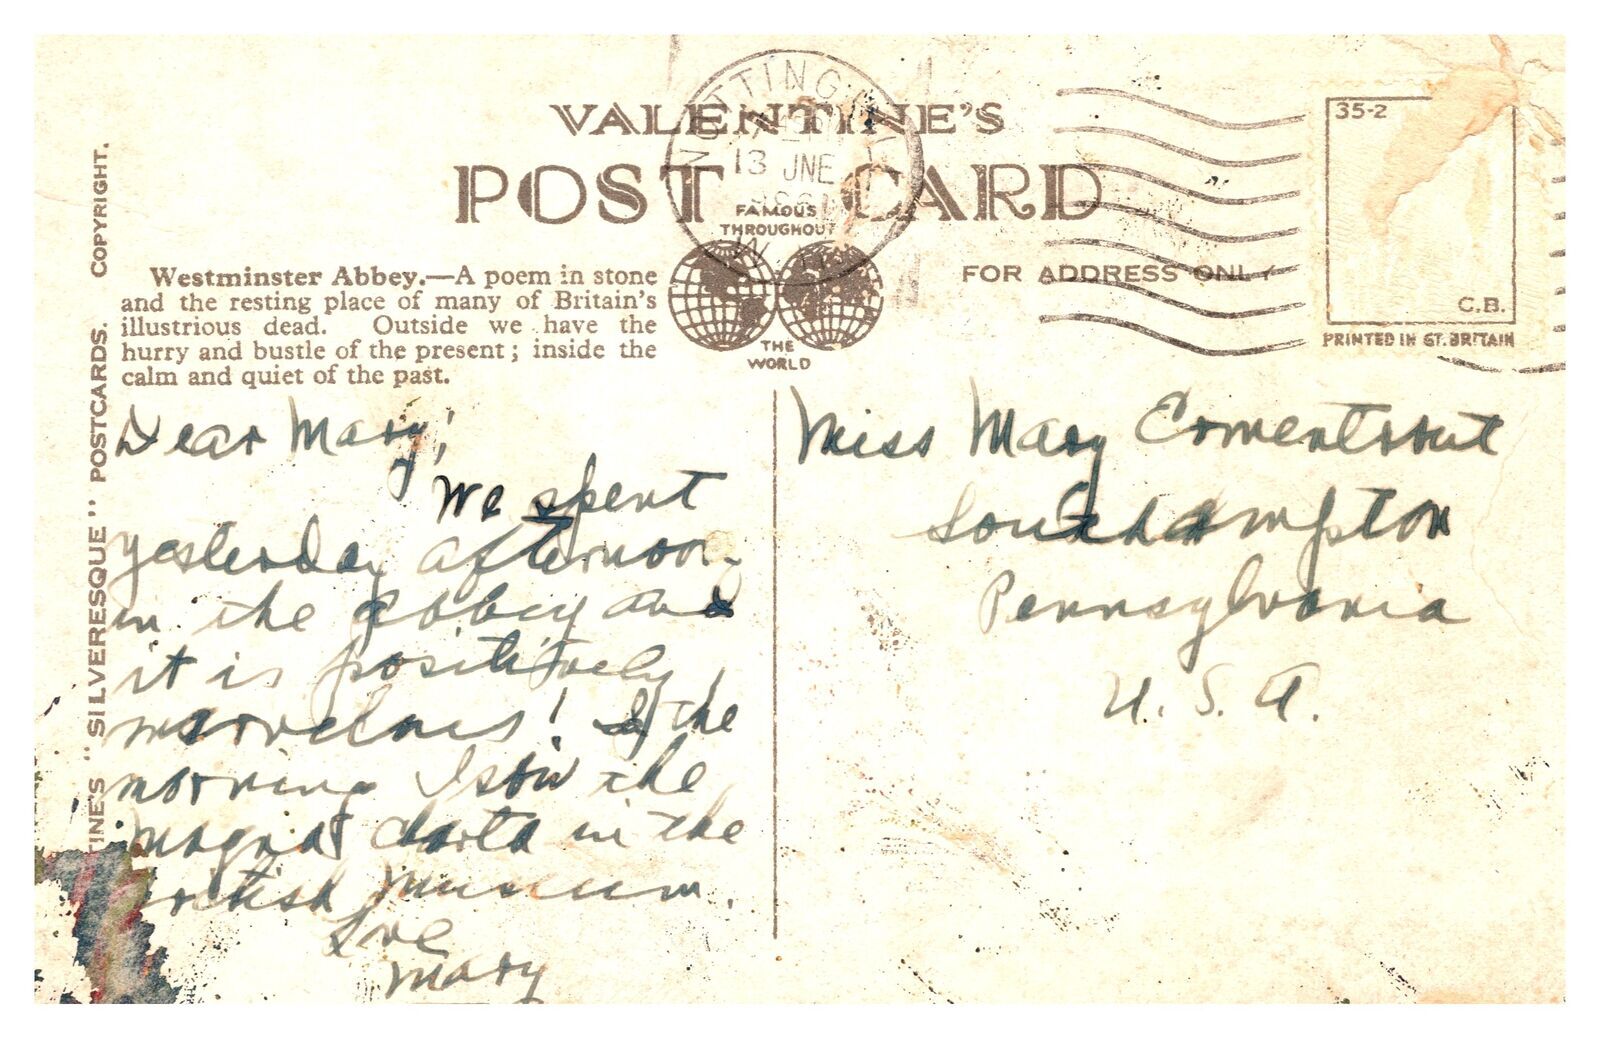 VALENTINE'S
POST CARD
NOTTING
13 JNE
FAMOUS
THROUGHOUT
THE
WORLD
FOR ADDRESS ONLY
35-2
C.B.
PRINTED IN GT. BRITAIN
TINE'S "SILVERESQUE" POSTCARDS. COPYRIGHT.
Westminster Abbey.—A poem in stone
and the resting place of many of Britain's
illustrious dead. Outside we have the
hurry and bustle of the present; inside the
calm and quiet of the past.
Dear Mary;
We spent
yesterday afternoon
in the abbey and
it is positively
marvelous! In the
morning I saw the
magna charta in the
museum.
Love
Mary
Miss Mary Ermentrout
Southampton
Pennsylvania
U. S. A.